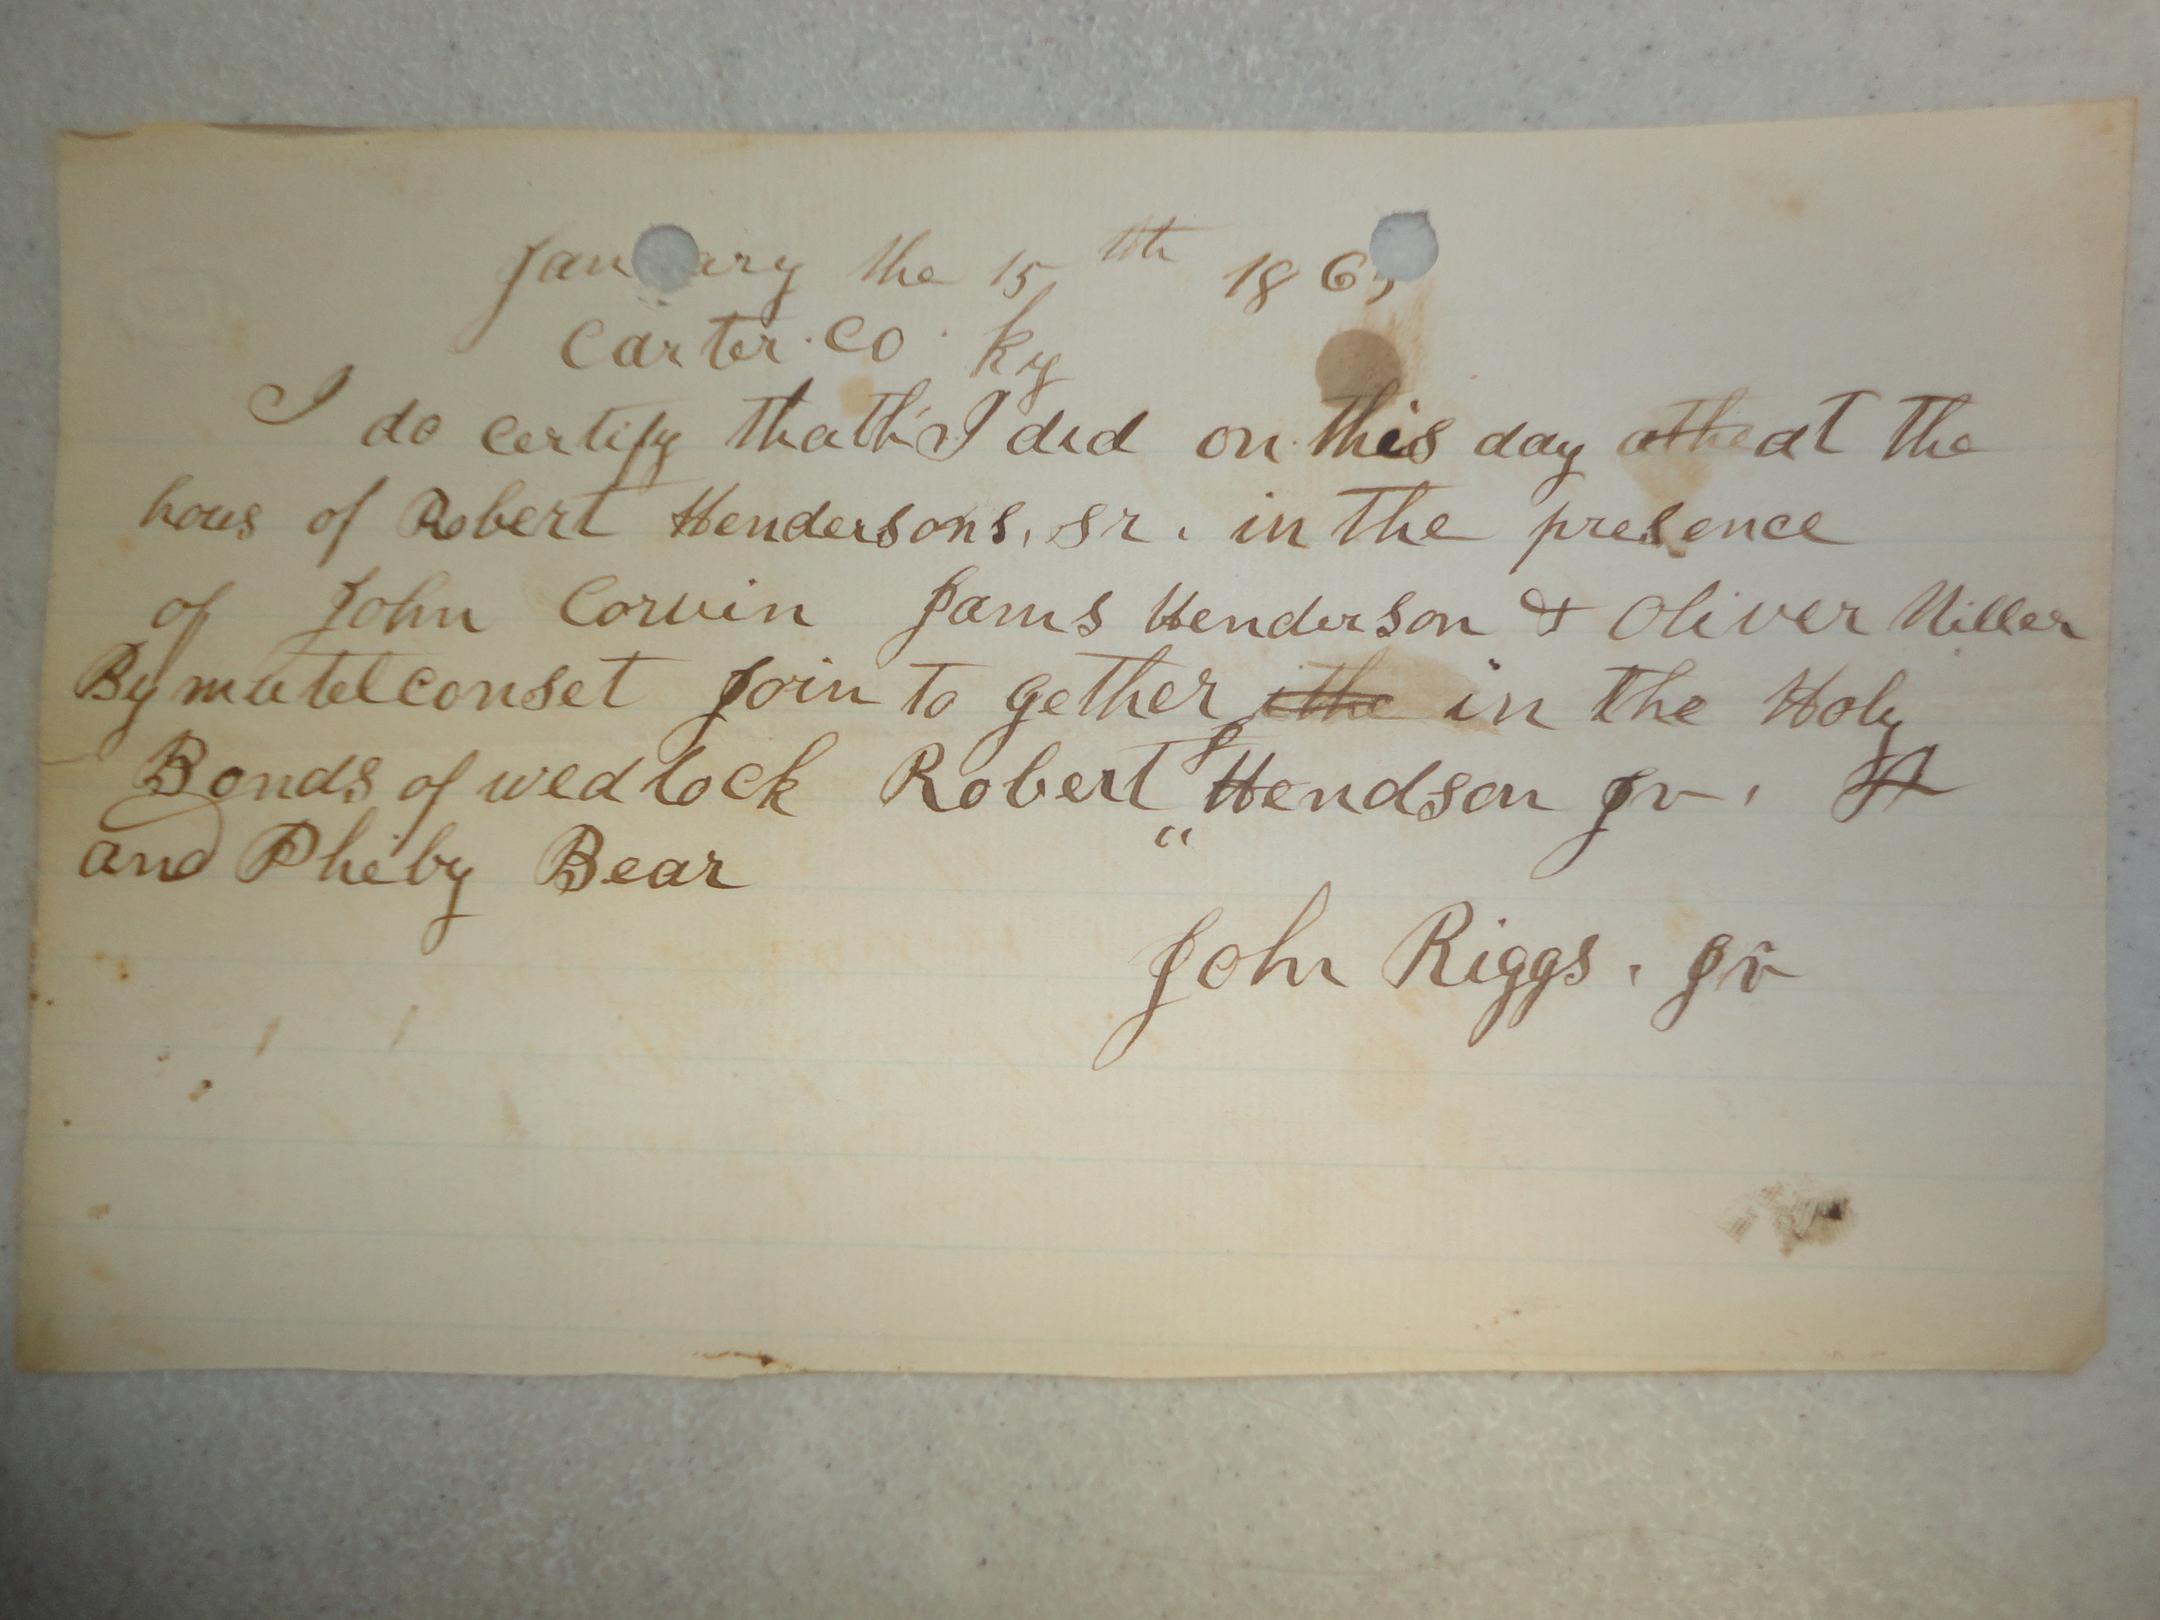 January the 15 th 186
Carter. Co. Ky
I do certify that I did on this day at the
hous of Robert Hendersons, sr. in the presence
of John Corvin Jams Henderson & Oliver Miller
By mutel conset Join to gether in the Holy
Bonds of wedlock Robert "J" Hendson Jr.
and Pheby Bear
John Riggs. Jr